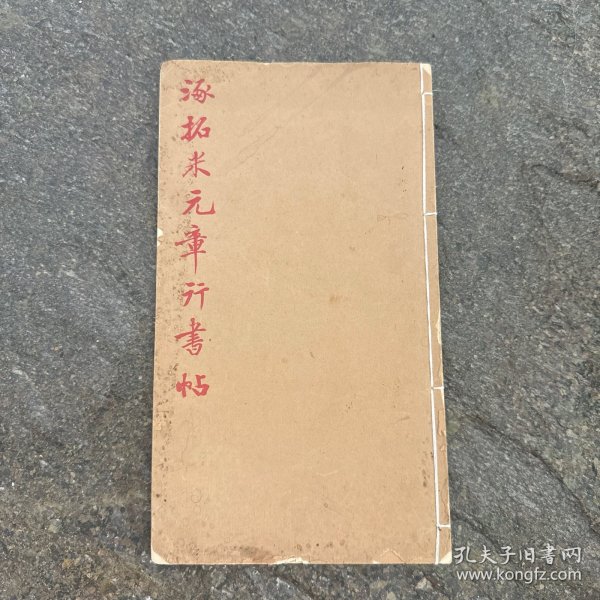 涿拓米元章行书帖
孔夫子旧书网
www.kongfz.com